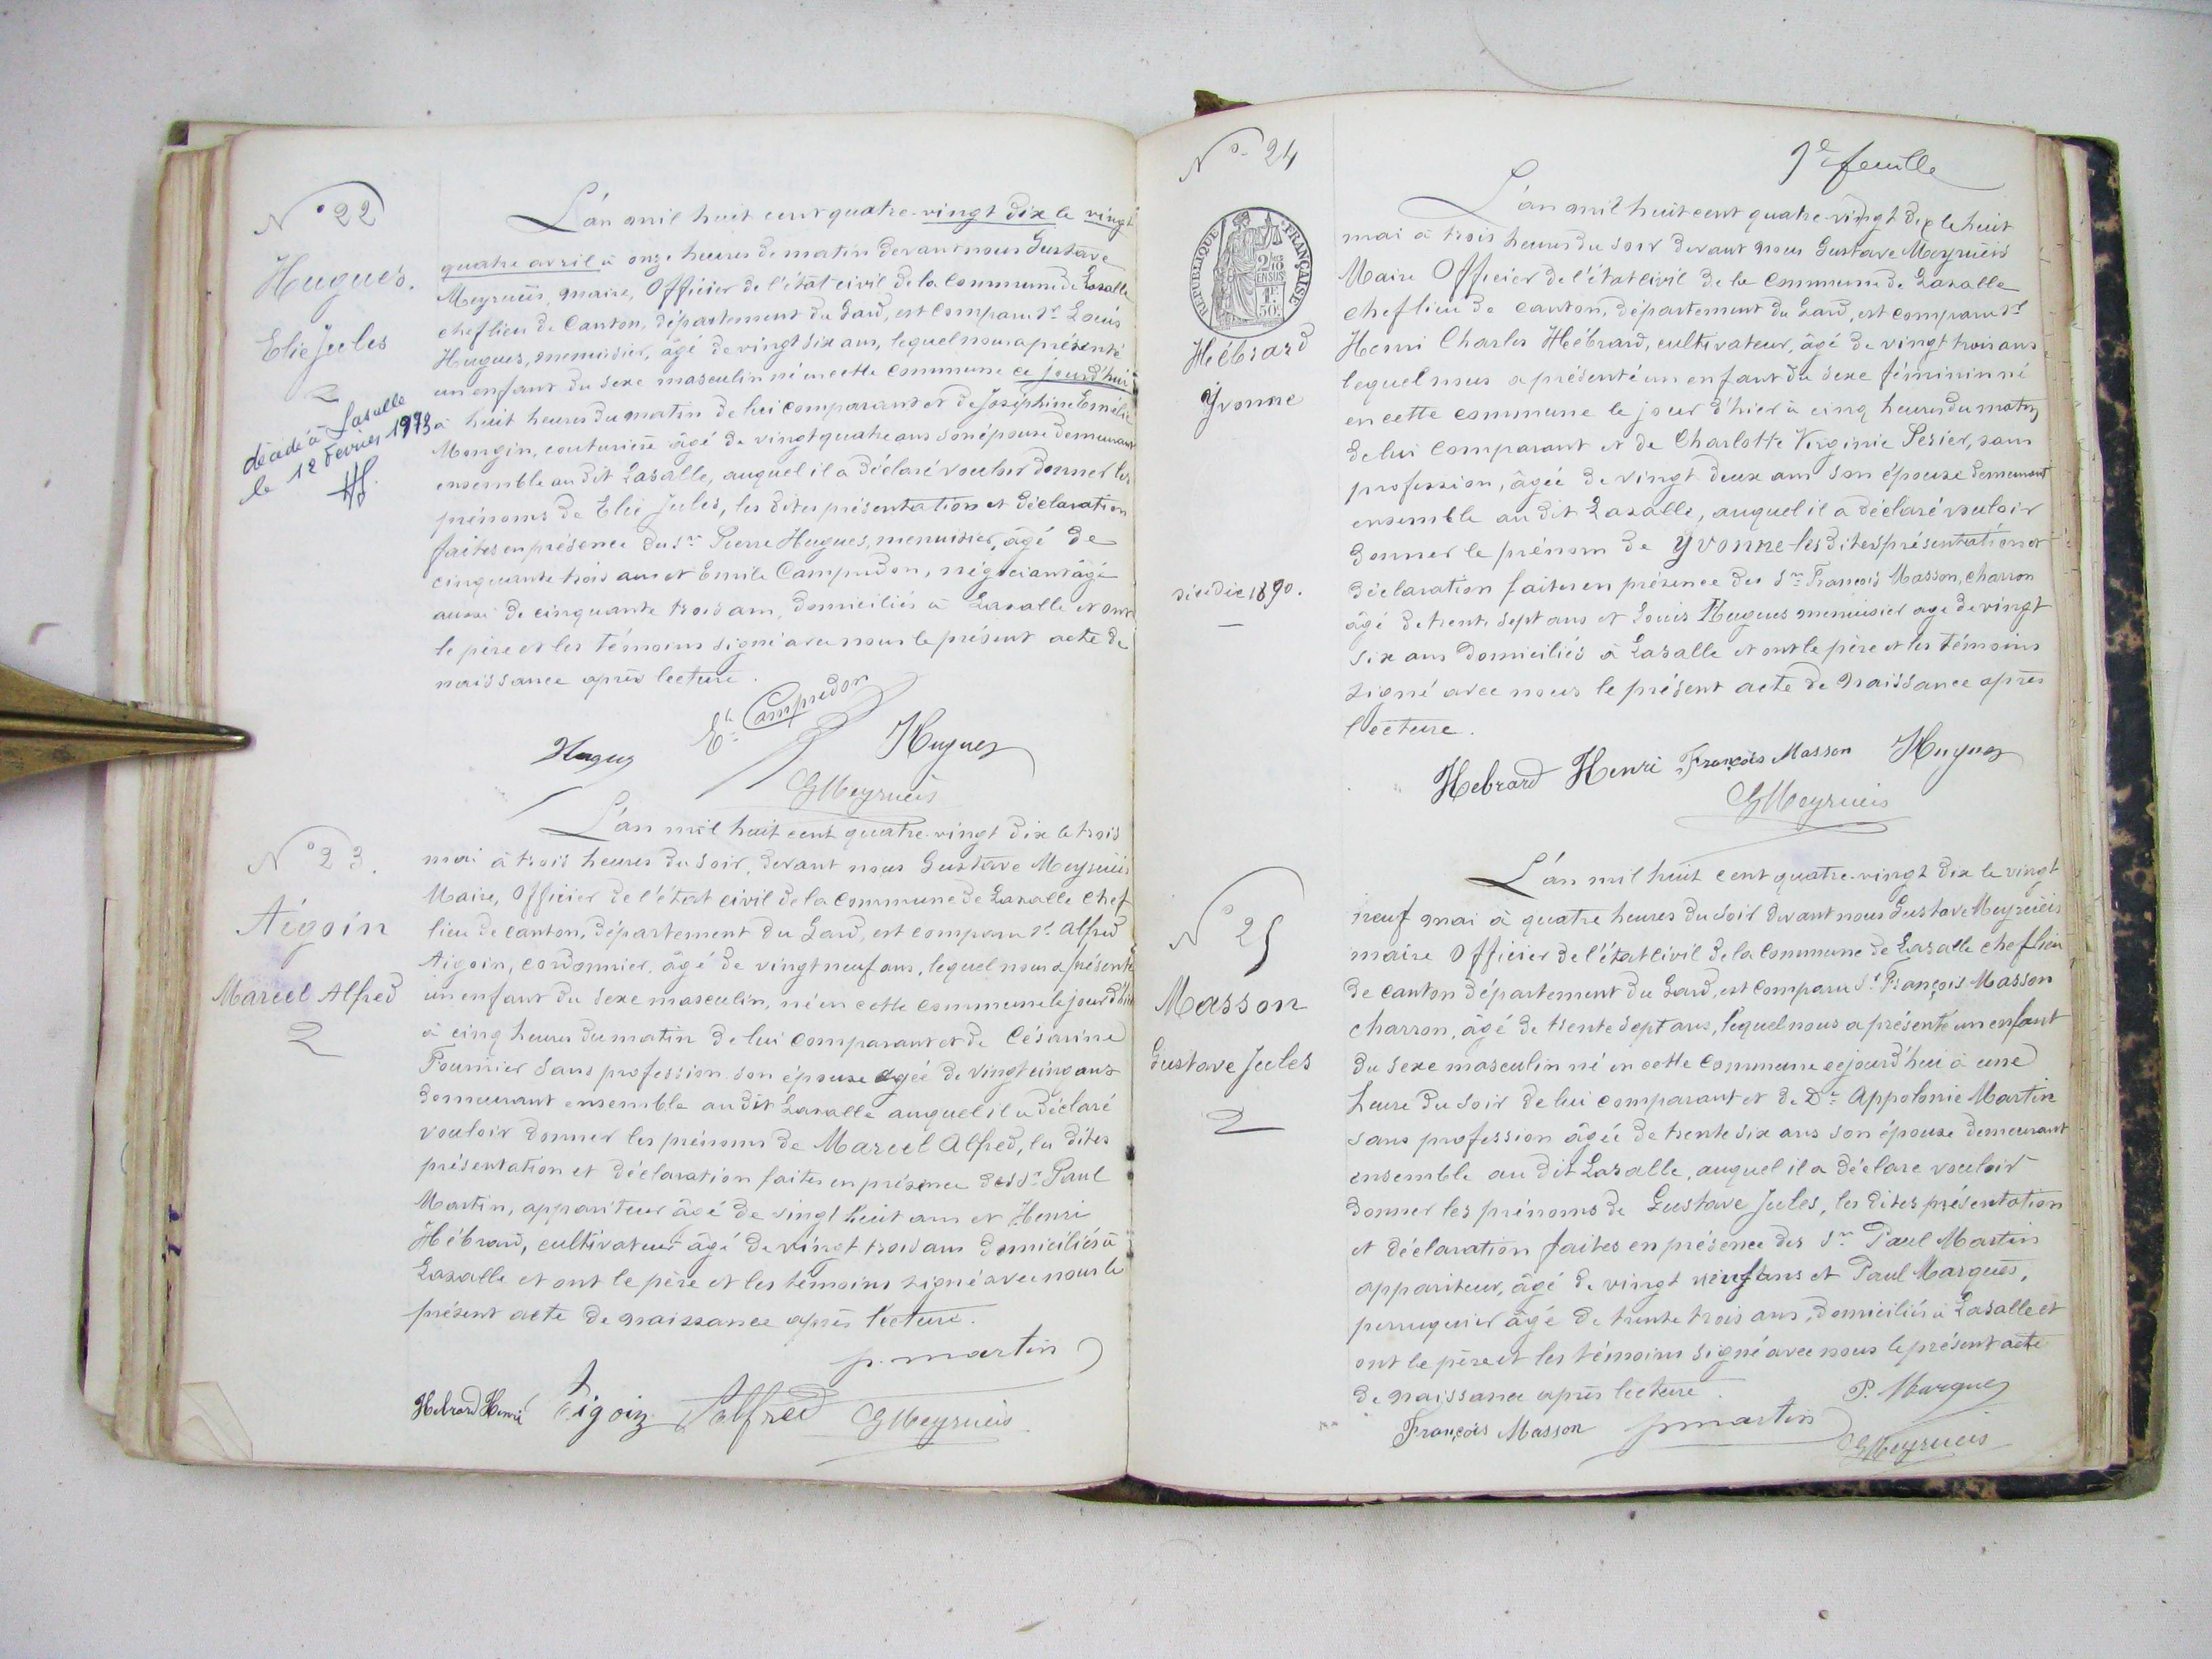 N° 22
Hugues.
Elie Jules
décédé à Lasalle
le 12 Février 1973
L'an mil huit cent quatre-vingt dix le vingt
quatre avril à onze heures du matin devant nous Gustave
Meyrueis, maire, Officier de l'état civil de la Commune de Lasalle
chef lieu de Canton, département du Gard, est comparu Sr Louis
Hugues, menuisier, âgé de vingt six ans, lequel nous a présenté
un enfant du sexe masculin né en cette Commune ce jourd'hui
à huit heures du matin de lui comparant et de Joséphine Emélie
Mongin, couturière âgé de vingt quatre ans son épouse demeurant
ensemble au dit Lasalle, auquel il a déclaré vouloir donner les
prénoms de Elie Jules, les dites présentation et déclaration
faites en présence du Sr Pierre Hugues, menuisier, âgé de
cinquante trois ans et Emile Campredon, négociant âgé
aussi de cinquante trois ans, domiciliés à Lasalle et ont
le père et les témoins signé avec nous le présent acte de
naissance après lecture.
Hugues
Ele Campredon
Hugues
GMeyrueis
N° 23.
Aigoin
Marcel Alfred
L'an mil huit cent quatre-vingt dix le trois
mai à trois heures du soir, devant nous Gustave Meyrueis
Maire, Officier de l'état civil de la Commune de Lasalle Chef
lieu de canton, département du Gard, est comparu Sr Alfred
Aigoin, cordonnier, âgé de vingt neuf ans, lequel nous a présenté
un enfant du sexe masculin, né en cette commune le jour d'hier
à cinq heures du matin de lui comparant et de Césarine
Fournier sans profession son épouse âgée de vingt cinq ans
demeurant ensemble au dit Lasalle auquel il a déclaré
vouloir donner les prénoms de Marcel Alfred, les dites
présentation et déclaration faites en présence des Sr Paul
Martin, appariteur âgé de vingt huit ans et Henri
Hébrard, cultivateur âgé de vingt trois ans domiciliés à
Lasalle et ont le père et les témoins signé avec nous le
présent acte de naissance après lecture.
p. martin
Hebrard Henri
Aigoin Alfred
GMeyrueis
N° 24
1e feuille
RÉPUBLIQUE FRANÇAISE
2/10 EN SUS
1F 50c
Hébrard
Yvonne
L'an mil huit cent quatre-vingt dix le huit
mai à trois heures du soir devant nous Gustave Meyrueis
Maire Officier de l'état civil de la Commune de Lasalle
Chef lieu de canton, département du Gard, est comparu Sr
Henri Charles Hébrard, cultivateur, âgé de vingt trois ans
lequel nous a présenté un enfant du sexe féminin né
en cette commune le jour d'hier à cinq heures du matin
de lui Comparant et de Charlotte Virginie Serier, sans
profession, âgée de vingt deux ans son épouse demeurant
ensemble au dit Lasalle, auquel il a déclaré vouloir
donner le prénom de Yvonne les dites présentation et
déclaration faites en présence des Sr François Masson, charron
âgé de trente sept ans et Louis Hugues menuisier âgé de vingt
six ans domiciliés à Lasalle et ont le père et les témoins
signé avec nous le présent acte de Naissance après
lecture.
1890.
Hebrard Henri
François Masson
Hugues
GMeyrueis
N° 25
Masson
Gustave Jules
L'an mil huit cent quatre-vingt dix le vingt
neuf mai à quatre heures du soir devant nous Gustave Meyrueis
maire Officier de l'état civil de la Commune de Lasalle chef lieu
de canton département du Gard, est comparu Sr François Masson
charron, âgé de trente sept ans, lequel nous a présenté un enfant
du sexe masculin né en cette Commune cejourd'hui à une
heure du soir de lui comparant et de De Appolonie Martin
sans profession âgée de trente six ans son épouse demeurant
ensemble au dit Lasalle, auquel il a déclare vouloir
donner les prénoms de Gustave Jules, les dites présentation
et déclaration faites en présence des Sr Paul Martin
appariteur, âgé de vingt neuf ans et Paul Marques,
perruquier âgé de trente trois ans, domiciliés à Lasalle et
ont le père et les témoins signé avec nous le présent acte
de naissance après lecture.
P. Marques
François Masson
pmartin
GMeyrueis